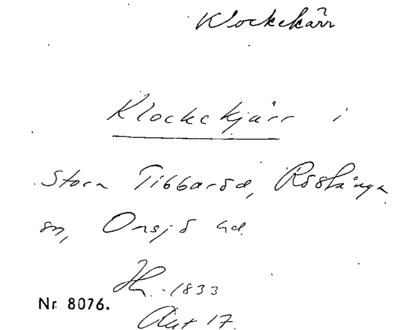 Klockekärr
Klockekjärr i
Stora Tibbaröd, Röstånga
sn, Onsjö hd.
Hm. 1833
Akt 17.
Nr. 8076.